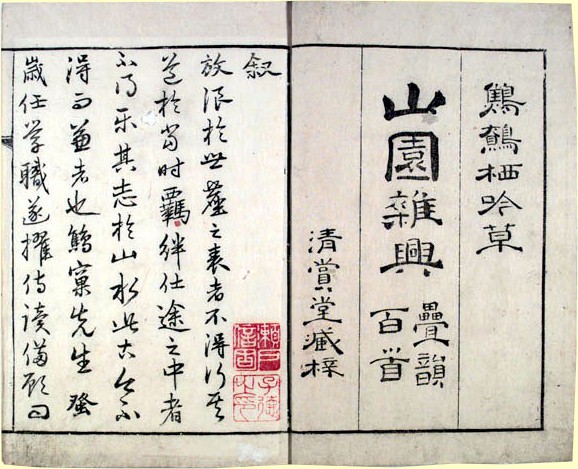 鷦鷯栖吟草
山園雜興 疊韻百首
清賞堂藏梓
叙
放浪於世塵之表者不得行其
道於当时羈絆仕途之中者
不得乐其志於山水此古今不
得而兼者也鷦窠先生
歳任学職遂擢侍讀備顧問